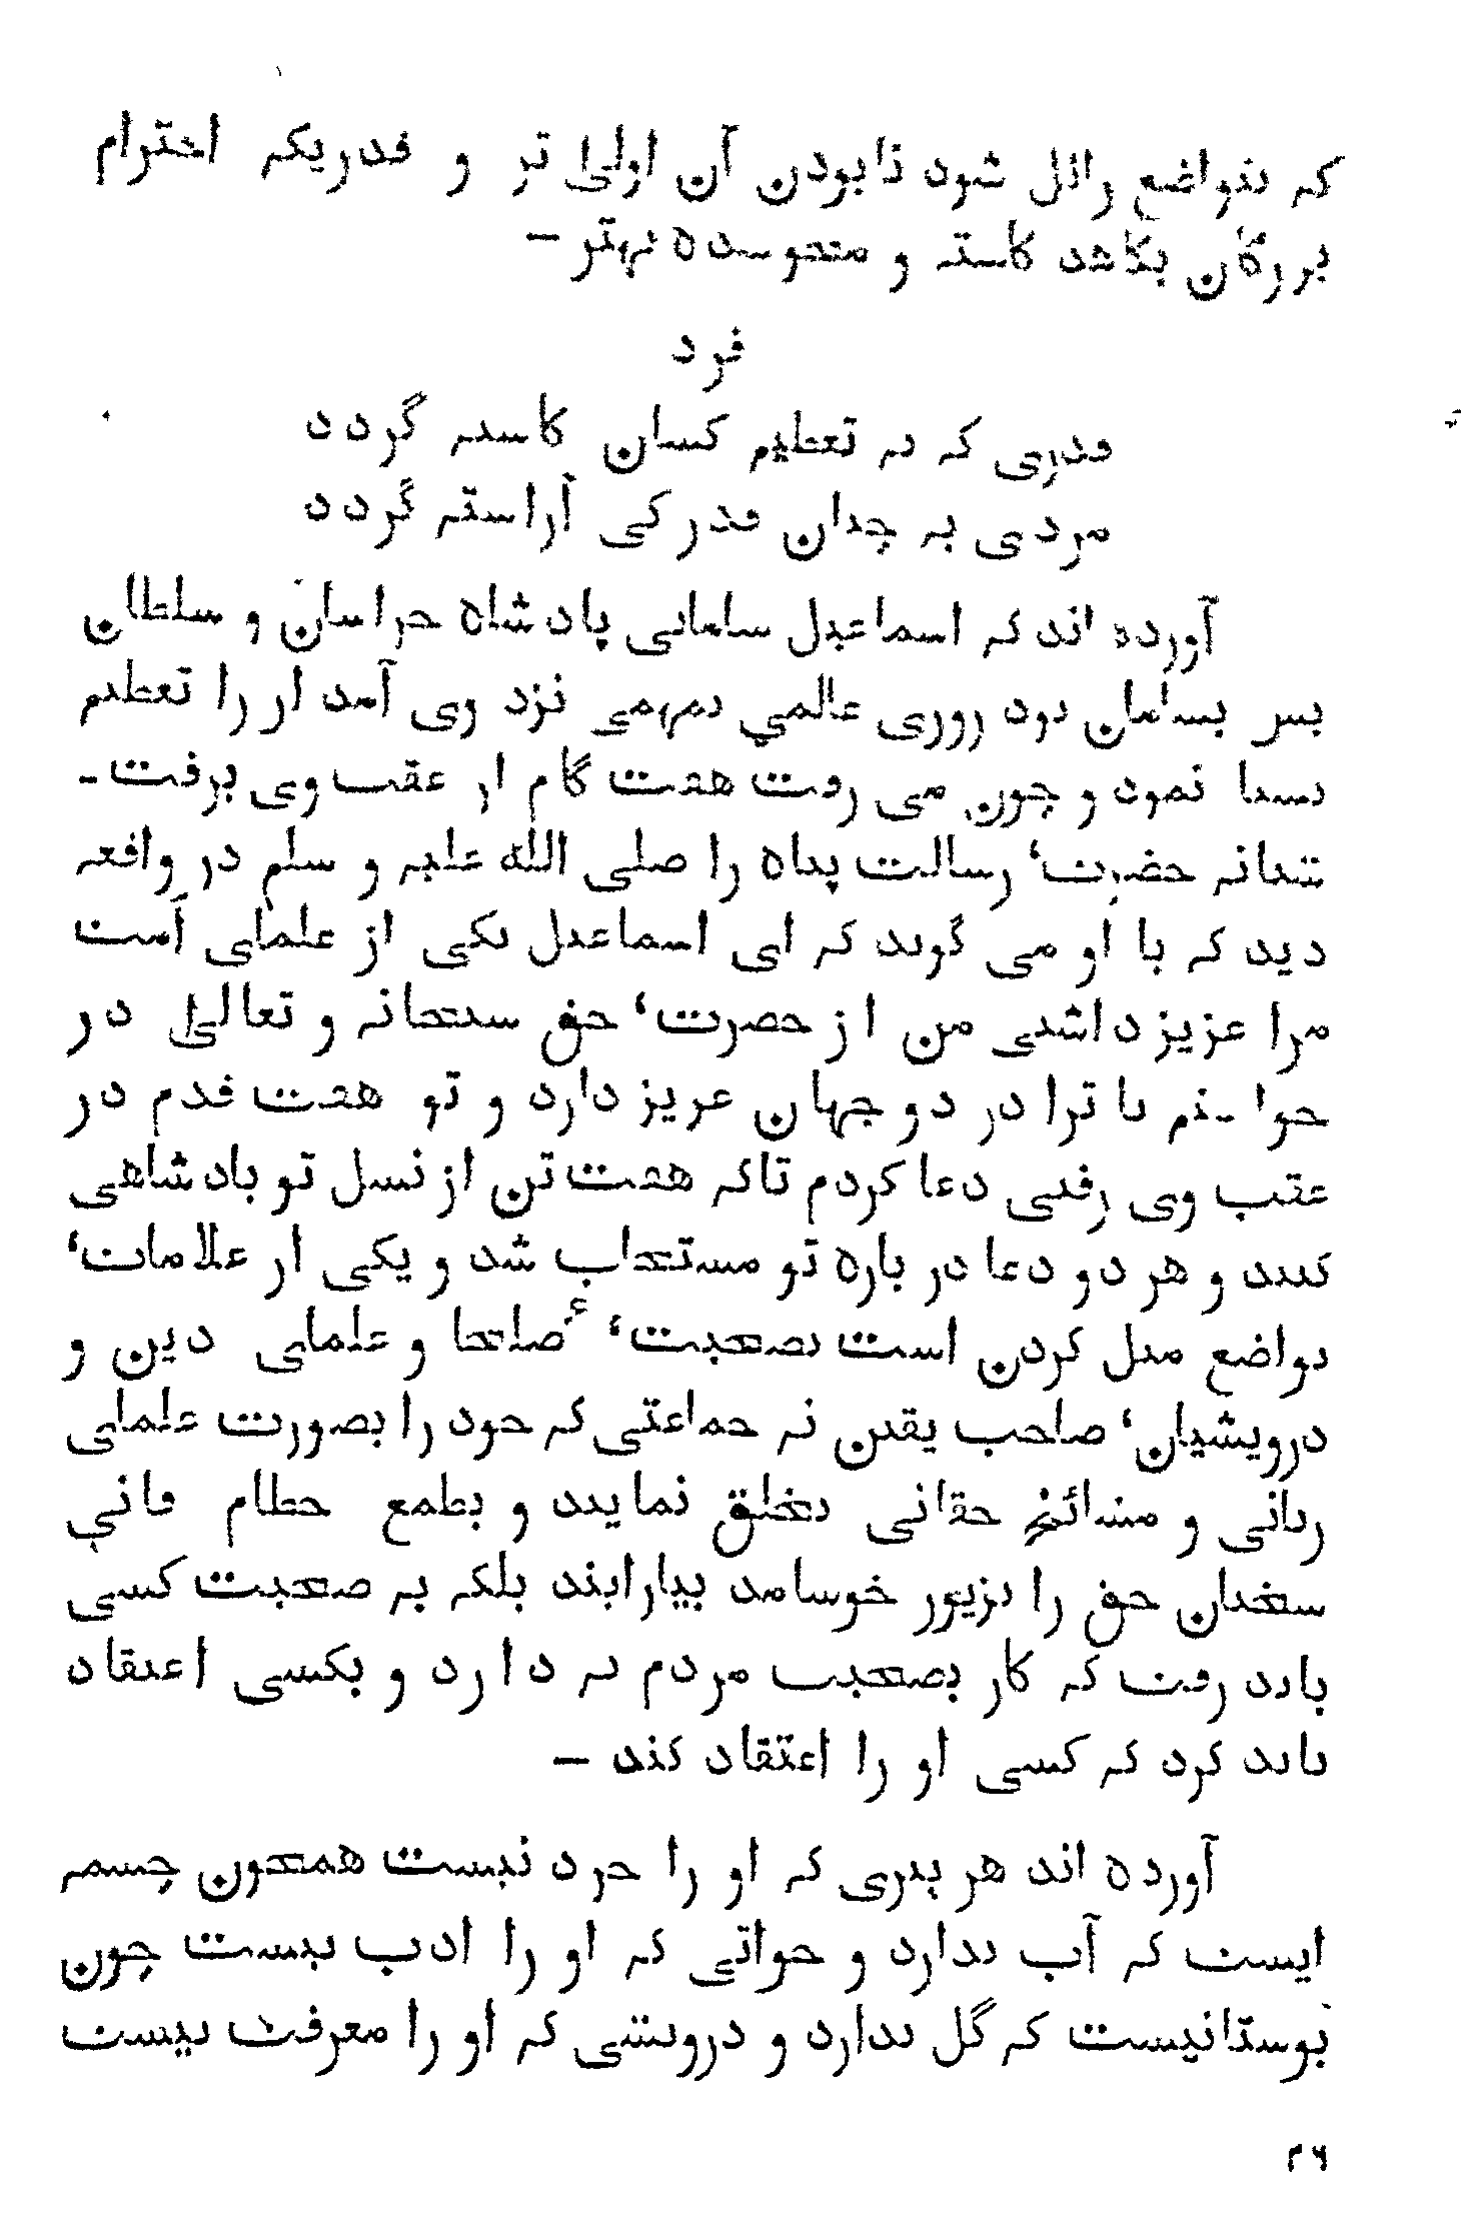 که بتواضع زائل شود نابودن آن اولیٰ تر و قدریکه احترام
بزرگان بکاهد کاسته و منحوسده بهتر -
فرد
قدری که به تعظیم کسان کاسته گردد
مردی به چنان قدر کی آراسته گردد
آورده اند که اسماعیل سامانی پادشاه خراسان و سلطان
بس بسامان بود روزی عالمی بمهمی نزد وی آمد او را تعظیم
بسیا نمود و چون می رفت هفت گام از عقب وی برفت -
شبانه حضرت‘ رسالت پناه را صلی الله علیه و سلم در واقعه
دید که با او می گوید که ای اسماعیل یکی از علمای امت
مرا عزیز داشتی من از حضرت‘ حق سبحانه و تعالیٰ در
خواستم تا ترا در دو جهان عزیز دارد و تو هفت قدم در
عقب وی رفتی دعا کردم تاکه هفت تن از نسل تو بادشاهی
کنند و هر دو دعا در باره تو مستجاب شد و یکی از علامات‘
تواضع میل کردن است بصحبت‘ صلحا و علمای دین و
درویشان‘ صاحب یقین نه جماعتی که خود را بصورت علمای
ربانی و مشائخ حقانی تخلق نمایند و بطمع حطام فانی
سخنان حق را بزیور خوشامد بیارایند بلکه به صحبت کسی
باید رفت که کار بصحبت مردم نه دارد و بکسی اعتقاد
باید کرد که کسی او را اعتقاد کند -
آورده اند هر پیری که او را خرد نیست همچون چشمه
ایست که آب ندارد و جوانی که او را ادب نیست چون
بوستانیست که گل ندارد و درویشی که او را معرفت نیست
۴۶